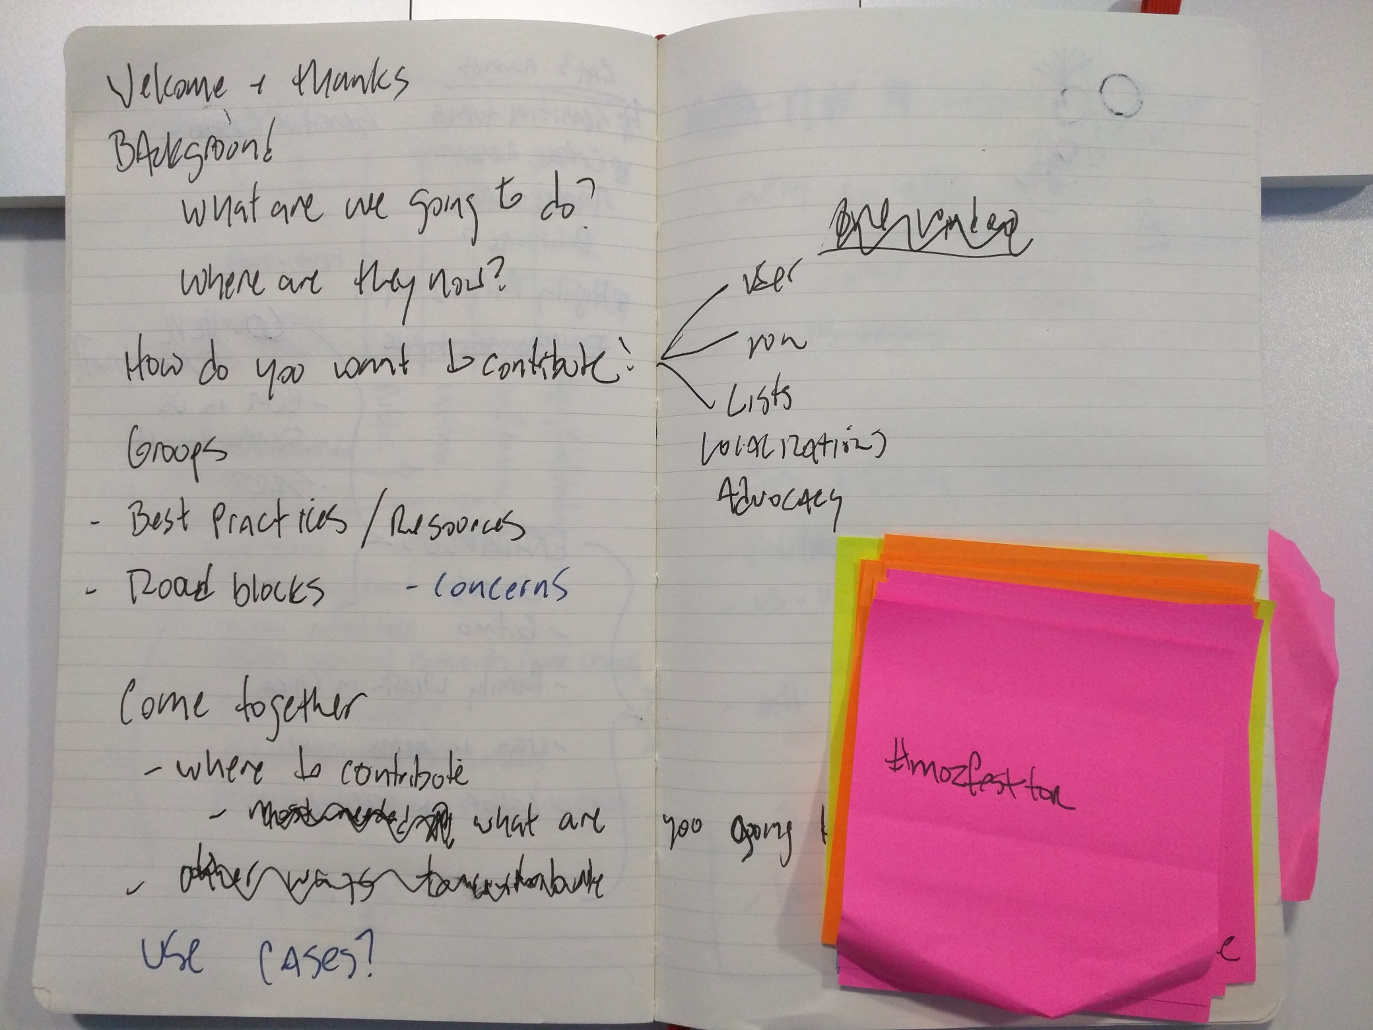 Welcome + thanks
Background
What are we going to do?
Where are they now?
How do you want to contribute?
Groups
- Best Practices / Resources
- Road blocks - concerns
Come together
- where to contribute
- what are you going
- other ways to contribute
Use cases?
user
run
Lists
Localizations
Advocacy
#mozfesttor
e